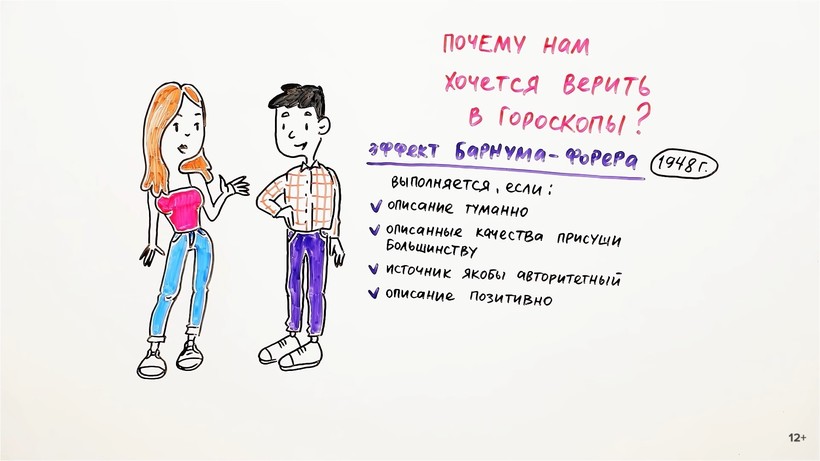 Почему нам
хочется верить
в гороскопы?
эффект Барнума-Форера 1948 г.
выполняется, если:
✓ описание туманно
✓ описанные качества присущи
большинству
✓ источник якобы авторитетный
✓ описание позитивно
12+